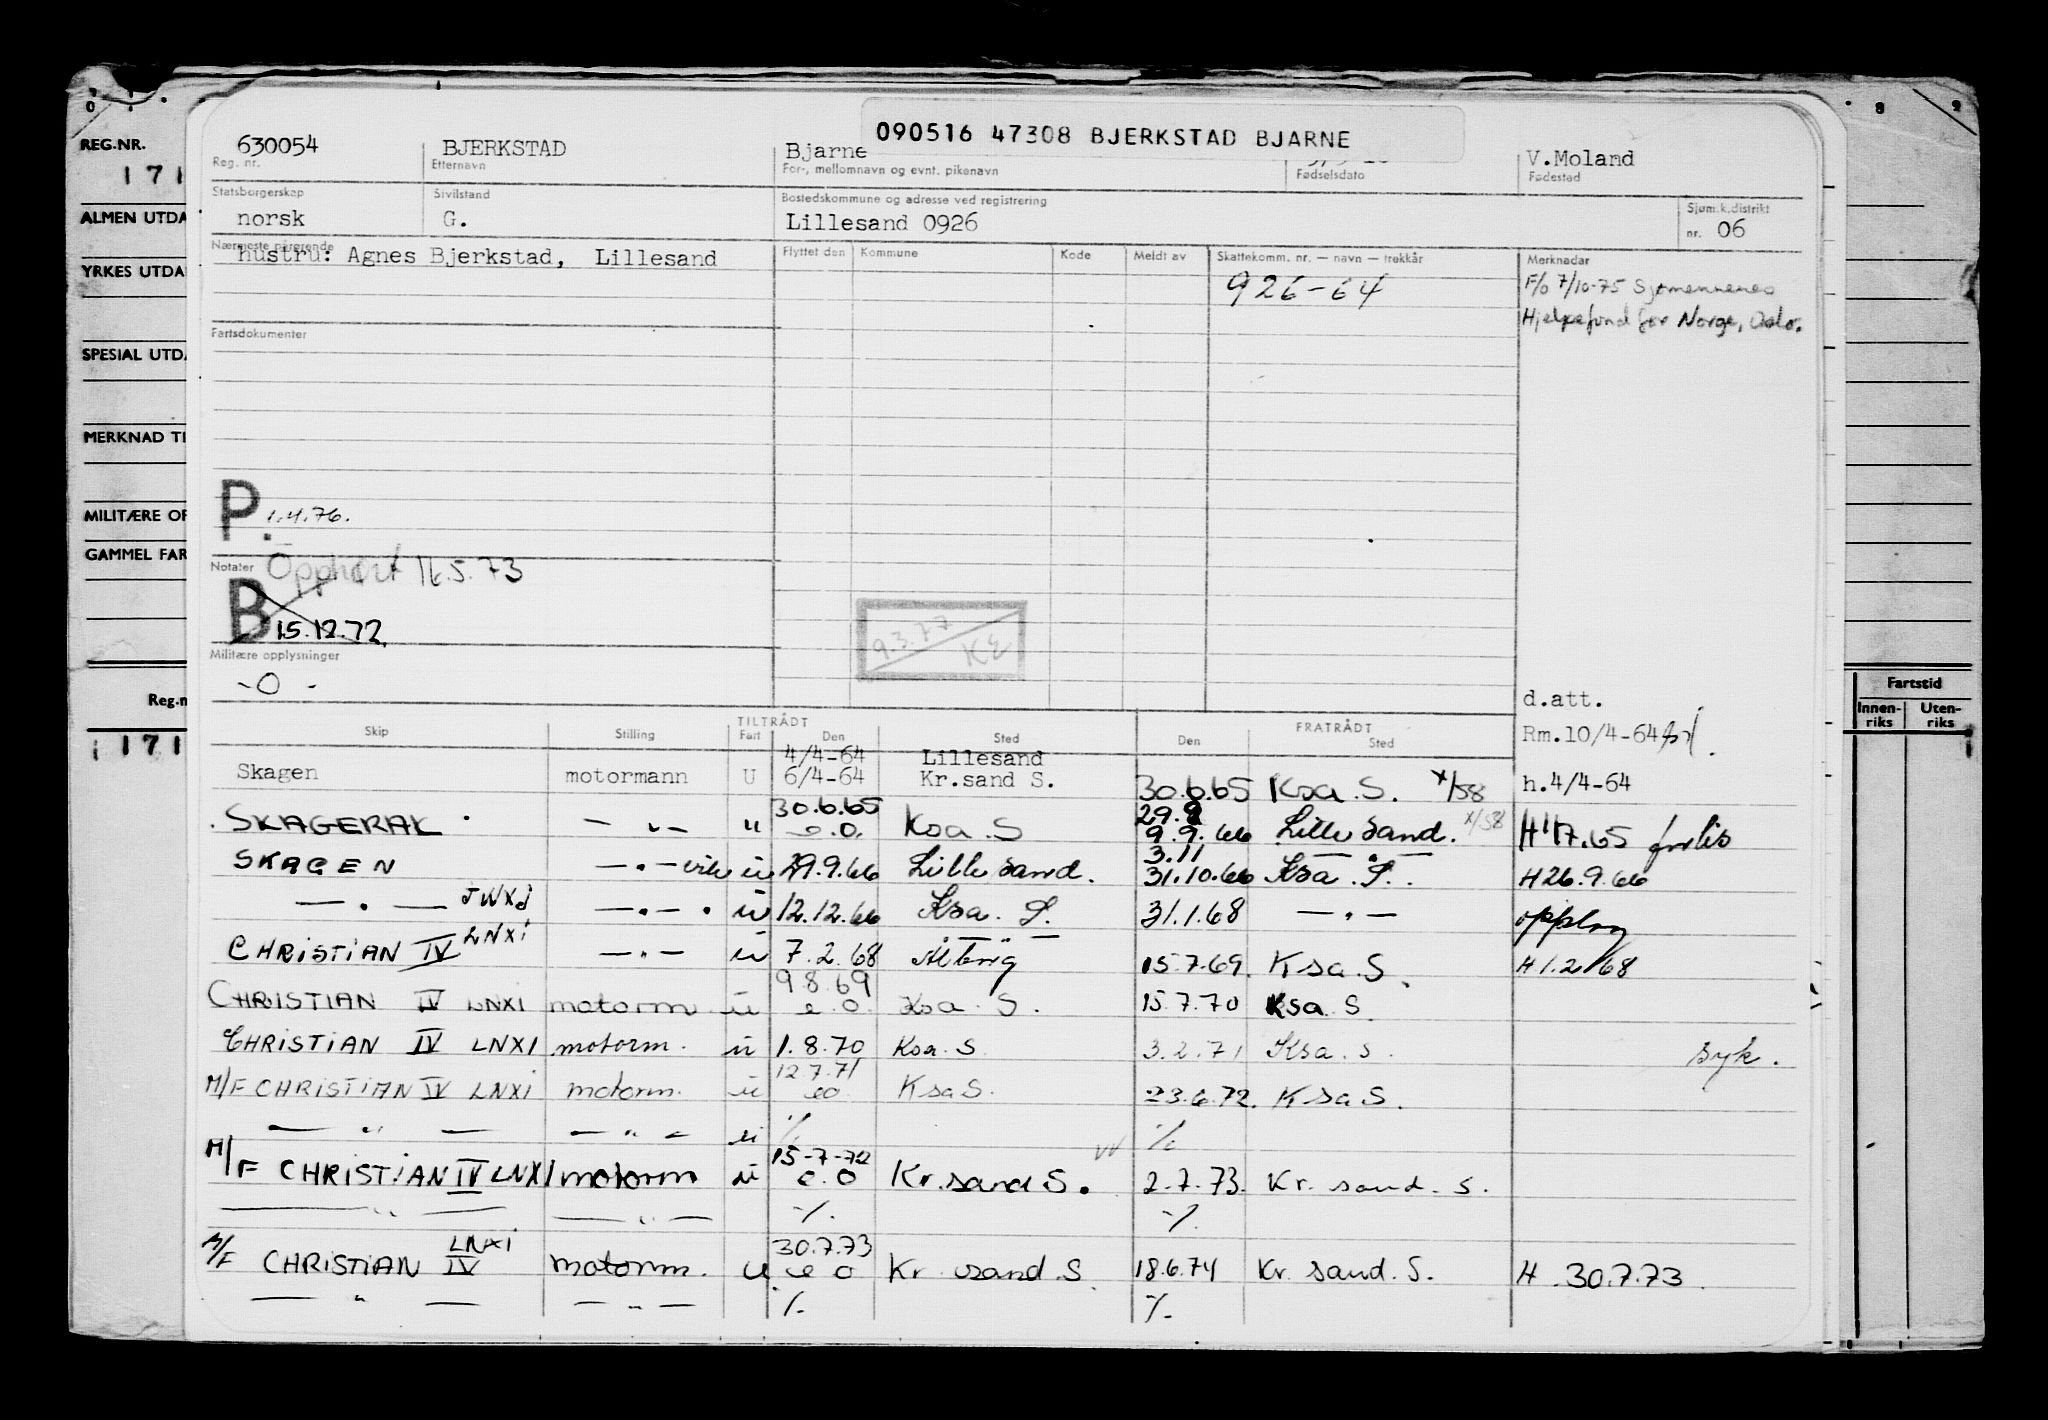 REG.NR.
171
ALMEN UTDA
YRKES UTDA
SPESIAL UTDA
MERKNAD TI
MILITÆRE OP
GAMMEL FAR
Reg.n
171
8 9
Fartstid
Innen-riks Uten-riks
090516 47308 BJERKSTAD BJARNE
630054 BJERKSTAD Bjarne V.Moland
Reg. nr. Etternavn For-, mellomnavn og evnt. pikenavn Fødselsdato Fødested
Statsborgerskap Sivilstand Bostedskommune og adresse ved registrering Sjøm.k.distrikt
norsk G. Lillesand 0926 nr. 06
Nærmeste pårørende Flyttet den Kommune Kode Meldt av Skattekomm. nr. — navn — trekkår Merknadar
hustru: Agnes Bjerkstad, Lillesand
926-64 F/o 7/10-75 Sjømennenes
Hjelpefond for Norge, Oslo.
Fartsdokumenter
P. 1.4.76.
Notater Opphørt 16.5.73
B 15.12.72.
9.3.77 KE
Militære opplysninger
-0-
d.att.
TILTRÅDT FRATRÅDT
Skip Stilling Fart Den Sted Den Sted
Rm.10/4-64
4/4-64 Lillesand
Skagen motormann U 6/4-64 Kr.sand S. 30.6.65 Ksa. S. x/58 h.4/4-64
30.6.65 29.9
SKAGERAK — " — " e.o. Ksa. S 9.9.66 Lillesand. x/58 H 1/7.65 forlis
3.11
SKAGEN — " — vik u 29.9.66 Lillesand. 31.10.66 Ksa. S. H 26.9.66
— " — JWXJ — " — u 12.12.66 Ksa. S. 31.1.68 — " — opplag
CHRISTIAN IV LNXI — " — u 7.2.68 Ålborg 15.7.69. Ksa. S. H 1.2.68
9.8.69
CHRISTIAN IV LNXI motorm. u e.o. Ksa. S. 15.7.70 Ksa. S.
CHRISTIAN IV LNXI motorm. u 1.8.70 Ksa. S 3.2.71 Ksa. S. syk.
12.7.71
M/F CHRISTIAN IV LNXI motorm. u eo Ksa S. 23.6.72. Ksa S.
— " — — " — u %. %.
15-7-72
M/F CHRISTIAN IV LNXI motorm u e.o Kr.sand S. 2.7.73. Kr. sand. S.
— " — — " — %. %.
30.7.73
M/F CHRISTIAN IV LNXI motorm. u e o Kr. sand S. 18.6.74 Kr. sand. S. H. 30.7.73.
— " — — " — %. %.